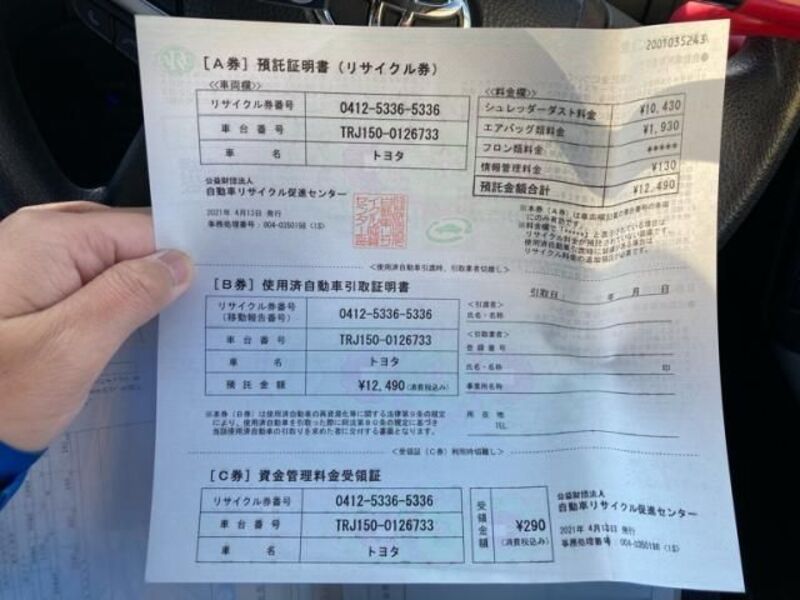 2001035243
[A券] 預託証明書(リサイクル券)
<<車両欄>>
リサイクル券番号 0412-5336-5336
車台番号 TRJ150-0126733
車名 トヨタ
<<料金欄>>
シュレッダーダスト料金 ¥10,430
エアバッグ類料金 ¥1,930
フロン類料金 *****
情報管理料金 ¥130
預託金額合計 ¥12,490
公益財団法人
自動車リサイクル促進センター
2021年 4月13日 発行
事務処理番号:004-0350198 (1S)
※本券(A券)は車両欄記載の車台番号の車両
にのみ有効です。
※料金欄で「*****」と表示されている場合は
<使用済自動車引渡時、引取業者切離し>
[B券] 使用済自動車引取証明書
引取日: 年 月 日
リサイクル券番号
(移動報告番号) 0412-5336-5336
車台番号 TRJ150-0126733
車名 トヨタ
預託金額 ¥12,490(消費税込み)
<引渡者>
氏名・名称
<引取業者>
登録番号
氏名・名称 印
事業所名称
所在地
TEL
※本券(B券)は使用済自動車の再資源化等に関する法律第9条の規定
により、使用済自動車を引取った際に同法第80条の規定に基づき
当該使用済自動車の引取りを求めた者に交付する書面となります。
<受領証(C券)利用時切離し>
[C券] 資金管理料金受領証
リサイクル券番号 0412-5336-5336
車台番号 TRJ150-0126733
車名 トヨタ
受領金額 ¥290
(消費税込み)
公益財団法人
自動車リサイクル促進センター
2021年 4月13日 発行
事務処理番号:004-0350198 (1S)